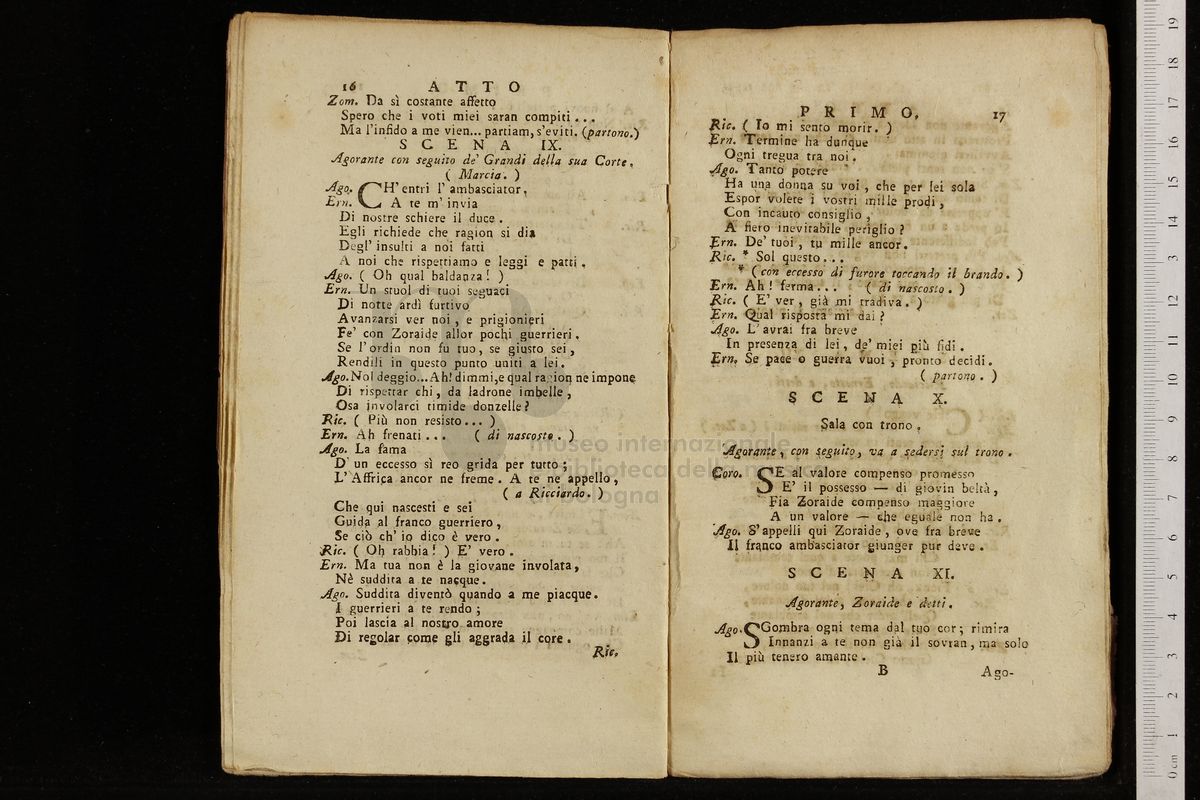 16 ATTO
Zom. Da sì costante affetto
Spero che i voti miei saran compiti...
Ma l'infido a me vien... partiam, s'eviti. (partono.)
SCENA IX.
Agorante con seguito de' Grandi della sua Corte.
( Marcia. )
Ago. CH' entri l' ambasciator.
Ern. A te m' invia
Di nostre schiere il duce.
Egli richiede che ragion si dia
Degl' insulti a noi fatti
A noi che rispettiamo e leggi e patti.
Ago. ( Oh qual baldanza! )
Ern. Un stuol di tuoi seguaci
Di notte ardì furtivo
Avanzarsi ver noi, e prigionieri
Fe' con Zoraide allor pochi guerrieri.
Se l'ordin non fu tuo, se giusto sei,
Rendili in questo punto uniti a lei.
Ago. Nol deggio... Ah! dimmi, e qual ragion ne impone
Di rispettar chi, da ladrone imbelle,
Osa involarci timide donzelle?
Ric. ( Più non resisto... )
Ern. Ah frenati... ( di nascosto. )
Ago. La fama
D' un eccesso sì reo grida per tutto;
L' Affrica ancor ne freme. A te ne appello,
( a Ricciardo. )
Che qui nascesti e sei
Guida al franco guerriero,
Se ciò ch' io dico è vero.
Ric. ( Oh rabbia! ) E' vero.
Ern. Ma tua non è la giovane involata,
Nè suddita a te nacque.
Ago. Suddita diventò quando a me piacque.
I guerrieri a te rendo;
Poi lascia al nostro amore
Di regolar come gli aggrada il core.
Ric.
PRIMO. 17
Ric. ( Io mi sento morir. )
Ern. Termine ha dunque
Ogni tregua tra noi.
Ago. Tanto potere
Ha una donna su voi, che per lei sola
Espor volete i vostri mille prodi,
Con incauto consiglio,
A fiero inevitabile periglio?
Ern. De' tuoi, tu mille ancor.
Ric. * Sol questo...
* ( con eccesso di furore toccando il brando. )
Ern. Ah! ferma... ( di nascosto. )
Ric. ( E' ver, già mi tradiva. )
Ern. Qual risposta mi dai?
Ago. L' avrai fra breve
In presenza di lei, de' miei più fidi.
Ern. Se pace o guerra vuoi, pronto decidi.
( partono. )
SCENA X.
Sala con trono.
Agorante, con seguito, va a sedersi sul trono.
Coro. SE al valore compenso promesso
E' il possesso — di giovin beltà,
Fia Zoraide compenso maggiore
A un valore — che eguale non ha.
Ago. S' appelli qui Zoraide, ove fra breve
Il franco ambasciator giunger pur deve.
SCENA XI.
Agorante, Zoraide e detti.
Ago. SGombra ogni tema dal tuo cor; rimira
Innanzi a te non già il sovran, ma solo
Il più tenero amante.
B Ago-
museo internazionale
biblioteca della
bologna
0 cm 1 2 3 4 5 6 7 8 9 10 11 12 13 14 15 16 17 18 19